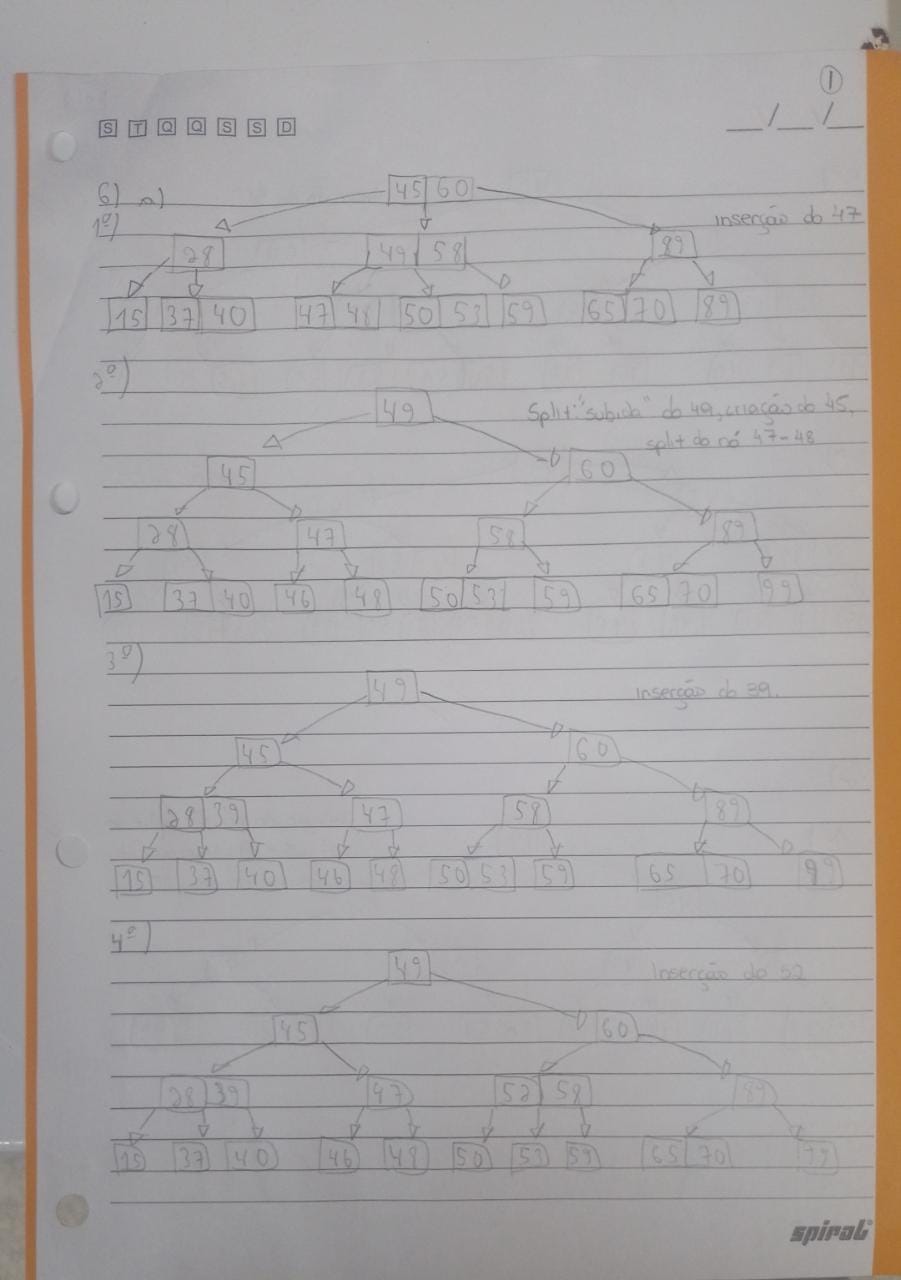 1
S T Q Q S S D
__/__/__
6) a)
45 60
1º) inserção do 47
28 49 58 89
15 37 40 47 48 50 53 59 65 70 89
2º)
49 Split: "subida" do 49, criação do 45,
split do nó 47-48
45 60
28 47 58 89
15 37 40 46 48 50 53 59 65 70 99
3º)
49 inserção do 39.
45 60
28 39 47 58 89
15 37 40 46 48 50 53 59 65 70 99
4º)
49 Inserção do 52
45 60
28 39 47 52 58 89
15 37 40 46 48 50 53 59 65 70 99
spiral